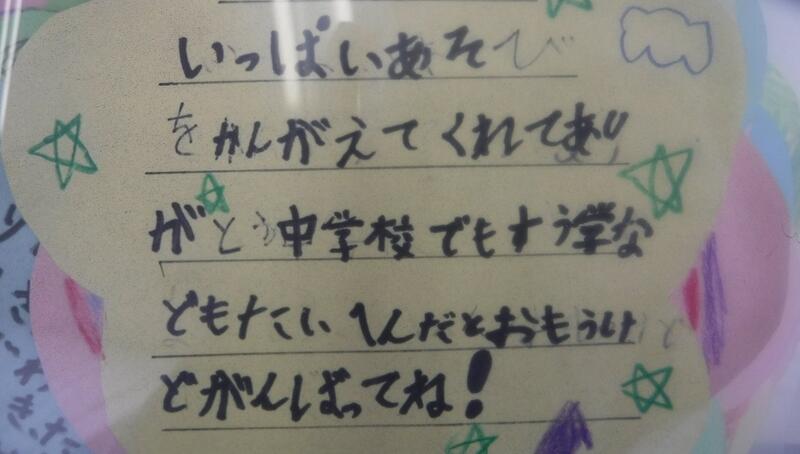 いっぱいあそび
をかんがえてくれてあり
がとう中学校でもすう学な
どもたいへんだとおもうけ
どがんばってね！